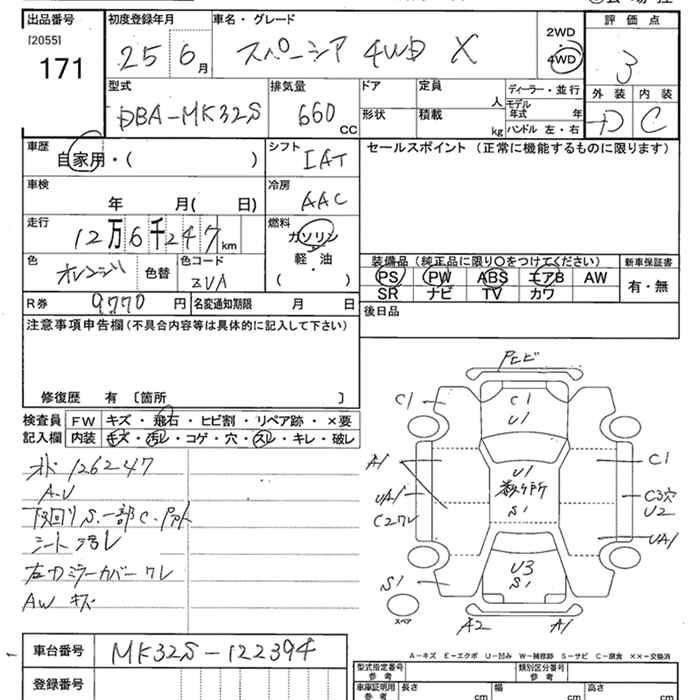 出品番号 初度登録年月 車名・グレード 評価点
[2055]
171
25 6月 スペーシア 4WD X 2WD 4WD 3
型式 排気量 ドア 定員 人 ディーラー・並行 外装 内装
DBA-MK32S 660 CC 形状 積載 kg モデル年式 年 ハンドル 左・右 D C
車歴 自家用・( ) シフト IAT セールスポイント (正常に機能するものに限ります)
車検 年 月( 日) 冷房 AAC
走行 12万6千247km 燃料 ガソリン 軽・油 ( )
色 オレンジ 色替 色コード ZVA
装備品 (純正品に限り○をつけてください) 新車保証書
PS PW ABS エアB AW 有・無
SR ナビ TV カワ
R券 9770円 名変通知期限 月 日 後日品
注意事項申告欄(不具合内容等は具体的に記入して下さい)
修復歴 有 〔箇所 〕
検査員 FW キズ・飛石・ヒビ割・リペア跡・×要
記入欄 内装 キズ・汚レ・コゲ・穴・スレ・キレ・破レ
オド 126247
A.U
下回り S.一部C.
シート 汚レ
左ドミラーカバー ワレ
AW キズ
ヒビ
C1 C1
U1
A1 U1 C1
UA1 数ヶ所 C3穴
C2ワレ S1 U2
UA1
S1 U3
S1
スペア
A2 A1
A-キズ E-エクボ U-凹み W-補修跡 S-サビ C-腐食 ××-交換済
車台番号 MK32S-122394
登録番号
型式指定番号 参考 類別区分番号 参考
車庫証明用 参考 長さ cm 幅 cm 高さ cm